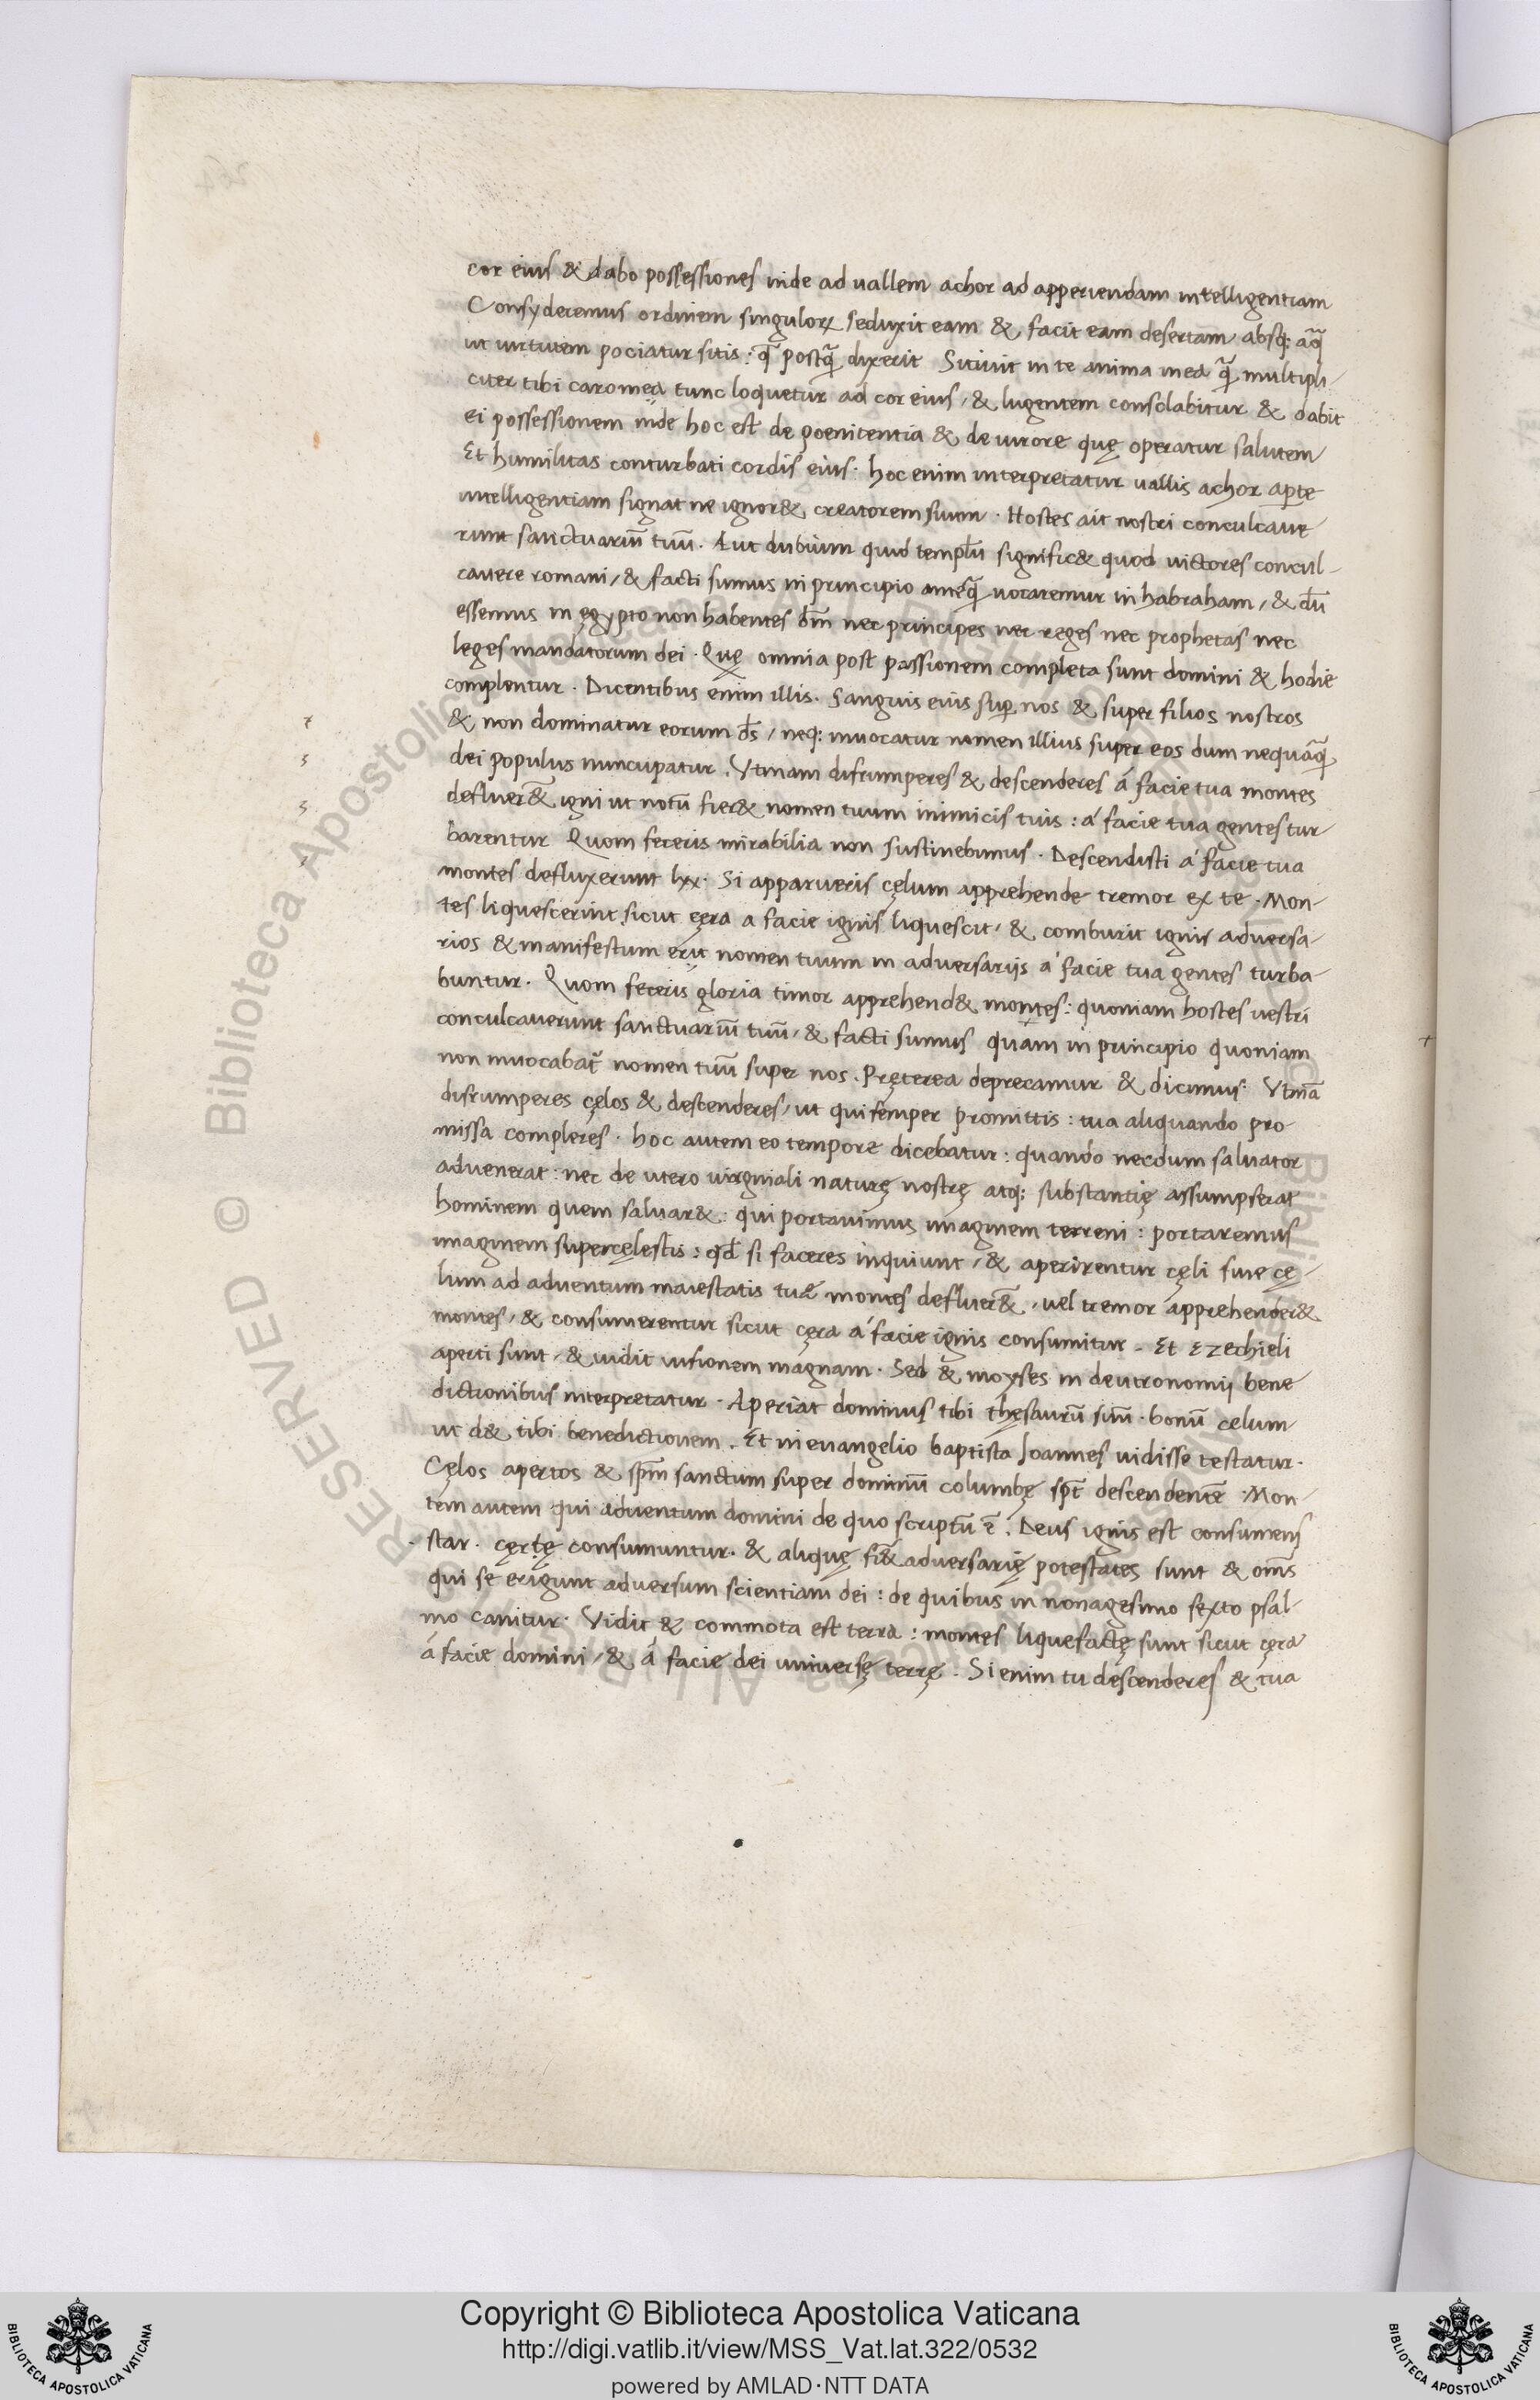 cor eius & dabo possessiones inde ad uallem achor ad apperiendam intelligentiam
Consyderemus ordinem singuloꝝ seduxit eam & facit eam desertam absq; aq̃
ut uirtutem pociatur sitis: q̃ postq̃ dixerit Sitiuit in te anima mea q̃ multipli-
citer tibi caro mea tunc loquetur ad cor eius, & lugentem consolabitur & dabit
ei possessionem inde hoc est de poenitentia & de uirore quę operatur salutem
Et humilitas conturbati cordis eius. hoc enim interpretatur uallis achor aꝑte
intelligentiam signat ne ignor& creatorem suum. Hostes ait nostri conculcaue
runt sanctuariū tuū. Aut dubium quid templū signific& quod uictores concul-
cauere romani, & facti sumus in principio anteq̃ uocaremur in habraham, & dū
essemus in egypto non habentes dm̃ nec principes nec reges nec prophetas nec
leges mandatorum dei. Quę omnia post passionem completa sunt domini & hodie
complentur. Dicentibus enim illis. Sanguis eius suꝑ nos & super filios nostros
& non dominatur eorum ds̃, neq; inuocatur nomen illius super eos dum nequaq̃
dei populus nuncupatur. Vtinam disrumperes & descenderes á facie tua montes
defluer&̃ igni ut notū fier& nomen tuum inimicis tuis: á facie tua gentes tur-
barentur Quom feceris mirabilia non sustinebimus. Descendisti á facie tua
montes defluxerunt lxx. Si apparueris cęlum apprehende tremor ex te. Mon-
tes liquescerint sicut cęra a facie ignis liquescit, & comburit ignis aduersa-
rios & manifestum erit nomen tuum in aduersarijs a facie tua gentes turba-
buntur. Quom feceris gloria timor apprehend& montes: quoniam hostes uestri
conculcauerunt sanctuariū tuū, & facti sumus quam in principio quoniam
non inuocabat᷑ nomen tuū super nos. Pręterea deprecamur & dicimus: Vtinā
disrumperes cęlos & descenderes, ut qui semper promittis: tua aliquando pro-
missa compleres. hoc autem eo tempore dicebatur: quando necdum saluator
aduenerat: nec de utero uirginali naturę nostrę atq; substantię assumpserat
hominem quem saluar&: qui portauimus imaginem terreni: portaremus
imaginem supercęlestis: qd̃ si faceres inquiunt, & aperirentur cęli siue cę-
lum ad aduentum maiestatis tuæ montes defluer&̃, uel tremor apprehender&
montes, & consumerentur sicut cęra á facie ignis consumitur. Et Ezechieli
aperti sunt, & uidit uisionem magnam. Sed & moyses in deutronomij bene
dictionibus interpretatur. Aperiat dominus tibi thęsaurū suū. bonū celum
ut d& tibi benedictionem. Et in euangelio baptista Joannes uidisse testatur.
Cęlos apertos & spm̃ sanctum super dominū columbę spẽ descendentē. Mon-
tem autem qui aduentum domini de quo scriptū ē. Deus ignis est consumens
star. cęrtę consumuntur. & aliquę fi&̃ aduersarię potestates sunt & om̃s
qui se erigunt aduersum scientiam dei: de quibus in nonagesimo sexto psal-
mo canitur. Vidit & commota est terra: montes liquefactę sunt sicut cęra
á facie domini, & á facie dei uniuersę terrę. Si enim tu descenderes & tua
Copyright © Biblioteca Apostolica Vaticana
http://digi.vatlib.it/view/MSS_Vat.lat.322/0532
powered by AMLAD·NTT DATA
BIBLIOTECA APOSTOLICA VATICANA
BIBLIOTECA APOSTOLICA VATICANA